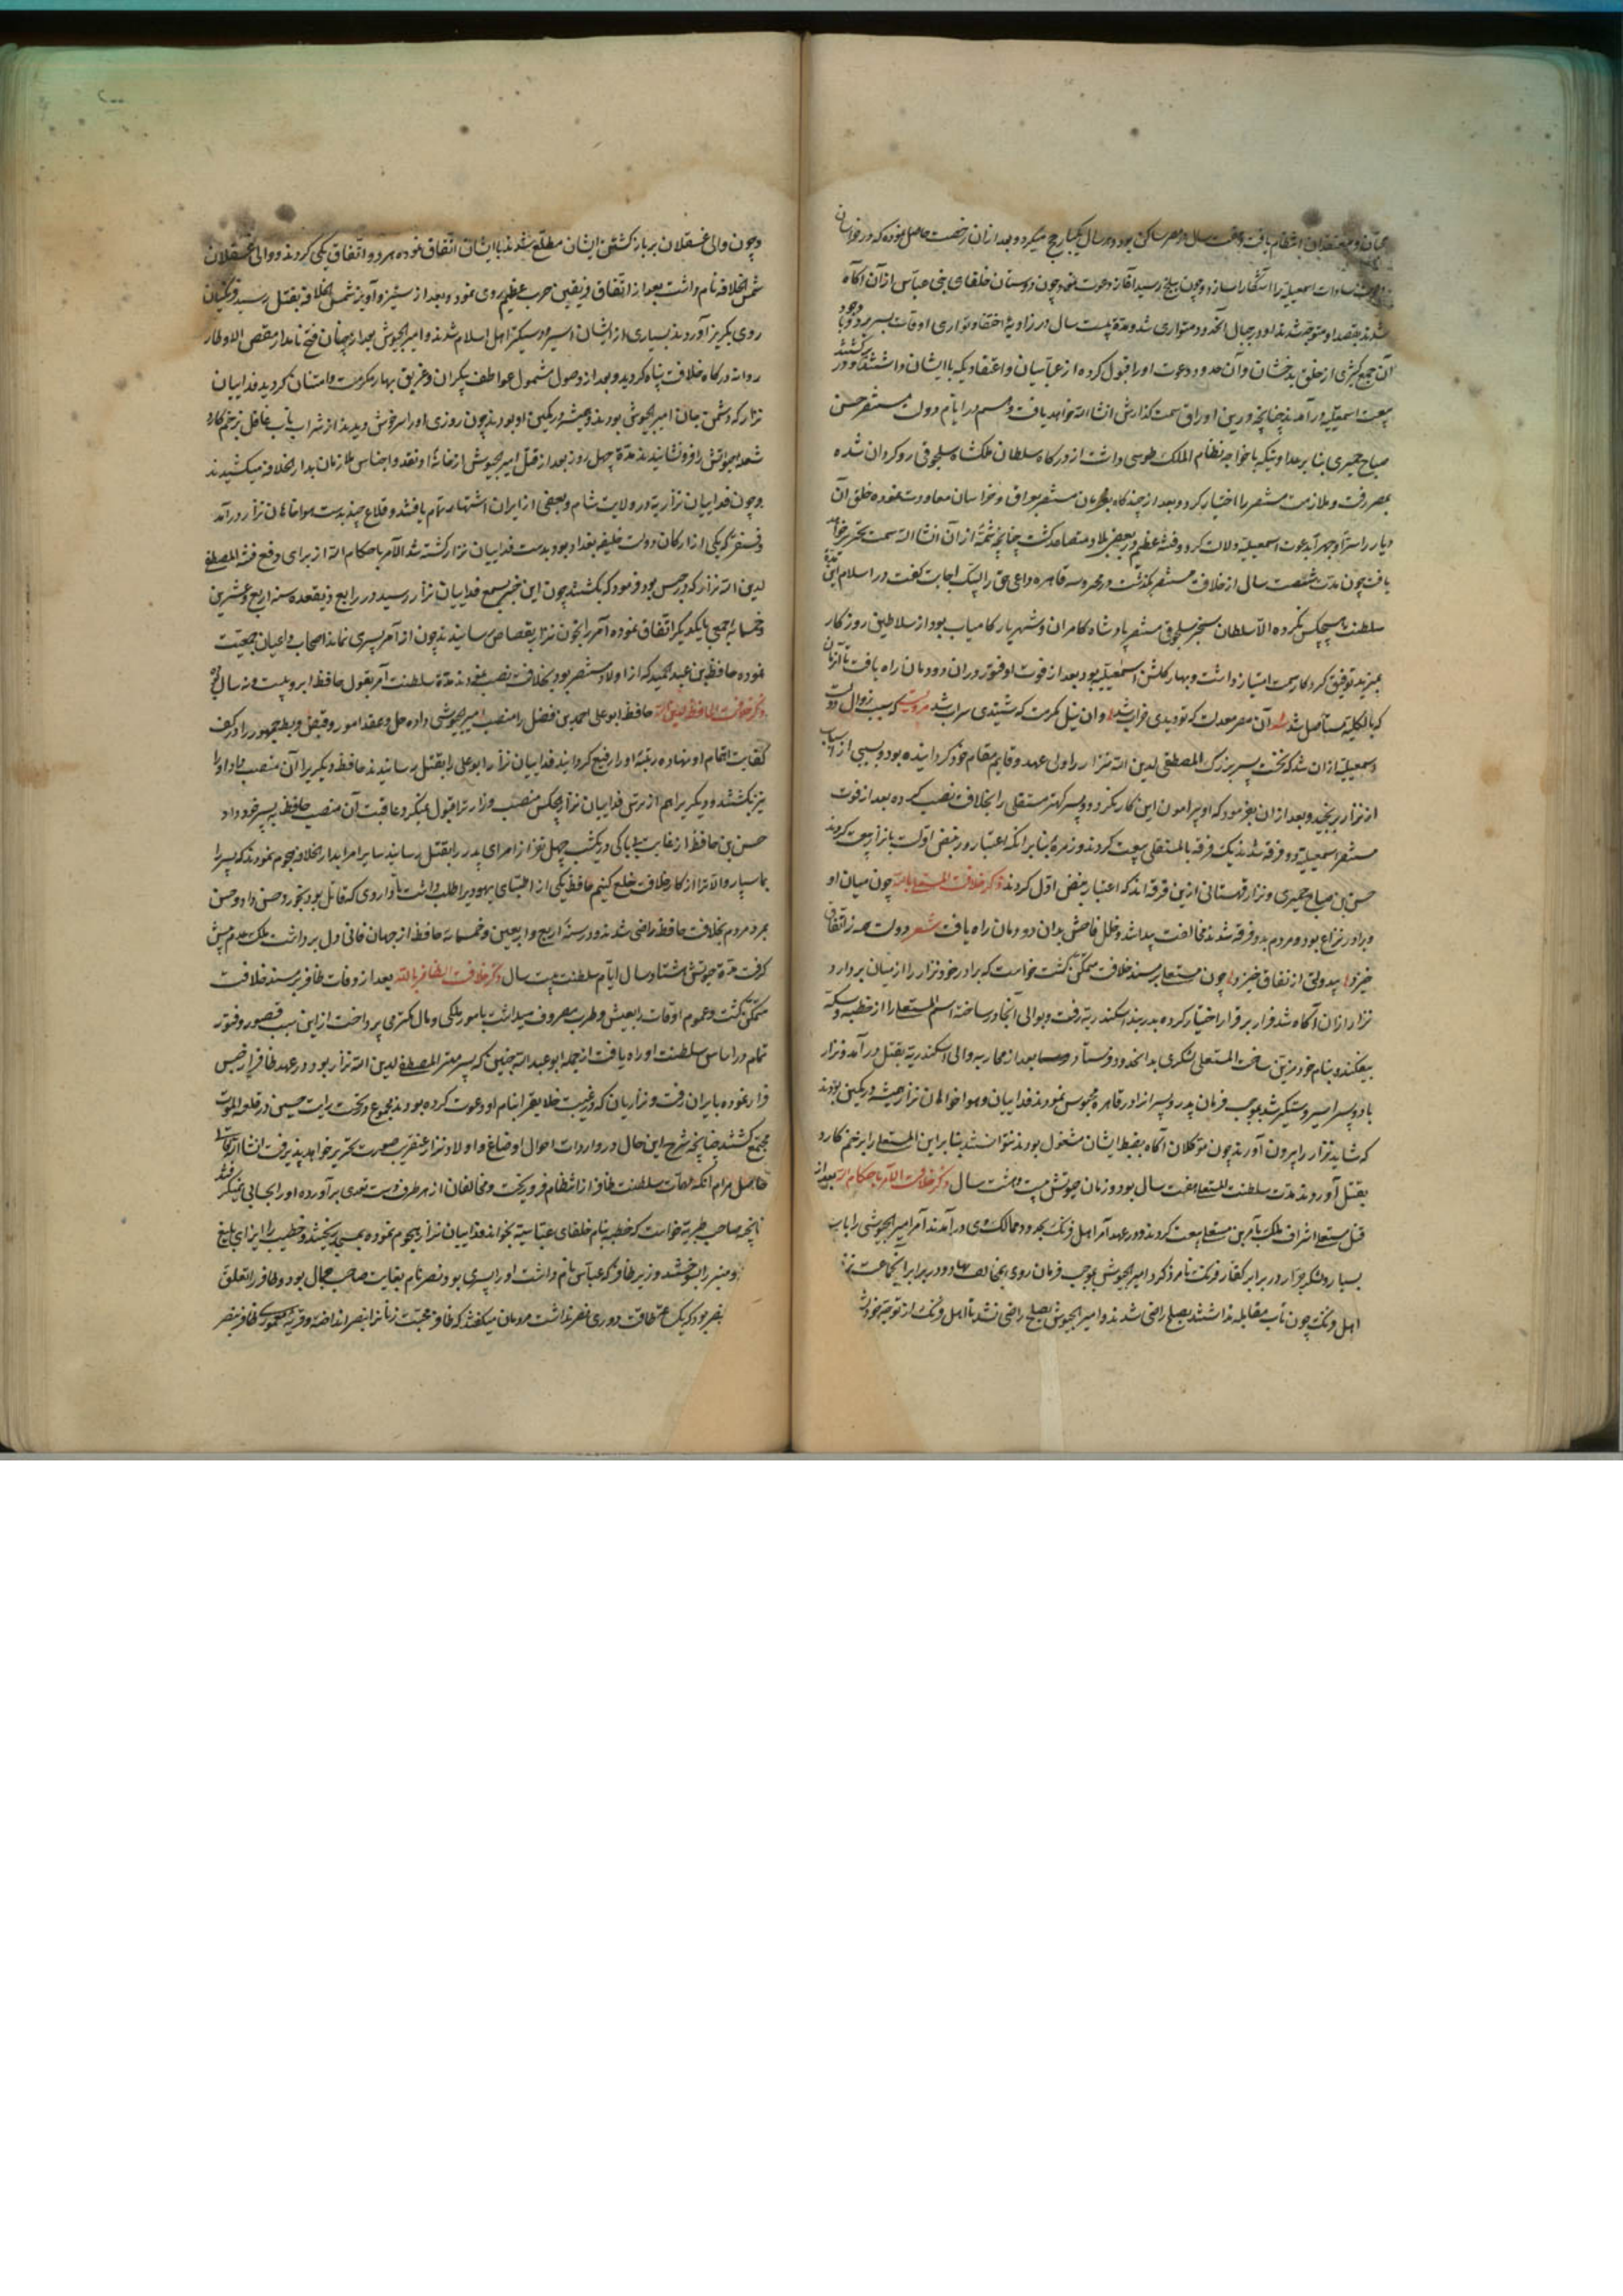 مهمات او بمعتقدان انتظام یافت و هفت سال در مصر ساکن بود و هر سال یکبار حج میکرد و بعد از ان رخصت حاصل نموده که در خراسان
دعوت سادات اسمعیلیه را آشکارا سازد و چون ببلخ رسید آغاز دعوت نمود چون دوستان خلفای بنی عباس از آن آگاه
شدند بقصد او متوجه شدند او در جبال آنحدود متواری شد و مدة بیست سال در زاویه اختفا و تواری اوقات بسر برد و با وجود
آن جمع کثیری از خلق بدخشان و آن حدود دعوت او را قبول کرده از عباسیان و اعتقادیکه با ایشان داشتند برکشتند و در
بیعت اسمعیلیه در آمدند چنانچه درین اوراق سمت کذارش انشا الله خواهد یافت و هم در ایام دولت مستنصر حسن
صباح حمیری بنا بر عداوتیکه با خواجه نظام الملک طوسی داشت از درکاه سلطان ملکشاه سلجوقی رو کردان شده
بمصر رفت و ملازمت مستنصر را اختیار کرد و بعد از چندکاه بفرمان مستنصر بعراق و خراسان معاودت نموده خلق آن
دیار را سرا و جهرا بدعوت اسمعیلیه دلالت کرد و فتنه عظیم در بعضی بلاد متصاعد کشت چنانچه شمه از ان انشا الله سمت تحریر خواهد
یافت چون مدت شصت سال از خلافت مستنصر بکذشت در محروسه قاهره داعی حق را لبیک اجابت کفت در اسلام این مدة
سلطنت هیچکس نکرده الا سلطان سنجر سلجوقی مستنصر پادشاه کامران و شهریار کامیاب بود از سلاطین روزکار
بمزید توفیق کردکار سمت امتیاز داشت و بهار کلشن اسمعیلیه بود بعد از فوت او فتور در ان دودمان راه یافت تا آنزمان
که بالکلیه مستاصل شد آن مصر معدلت که تو دیدی خراب شد وان نیل مکرمت که شنیدی سراب شد و سبب زوال دولت
اسمعیلیه ازان شد که نخست پسر بزرک المصطفی لدین الله نزار را ولی عهد و قایم مقام خود کردانیده بود و بسببی از اسباب
از نزار برنجید و بعد از ان بفرمود که او پیرامون این کار نکردد و پسر کهتر مستعلی را بخلافت نصب کرده بعد از فوت
مستنصر اسمعیلیه دو فرقه شدند یک فرقه با المستعلی بیعت کردند و زمرهٔ بنا بر انکه اعتبار در نص اولست با نزار بیعت کردند
حسن بن صباح حمیری و نزار قهستانی ازین فرقه اند که اعتبار بنص اول کردند ذکر خلافت المستعلی بالله چون میان او
و برادر نزاع بود و مردم بدو فرقه شدند مخالفت پیدا شد و خلل فاحش بدان دودمان راه یافت شعر دولت همه ز اتفاق
خیزد بیدولتی از نفاق خیزد چون مستعلی بر مسند خلافت متمکن کشت خواست که برادر خود نزار را از میان بردارد
نزار ازان آکاه شد فرار بر قرار اختیار کرده بدربند اسکندریه رفت و بوالی آنجا در ساخته اسم المستعلی را از خطبه و سکه
بیفکند و بنام خود مزین ساخت المستعلی لشکری بدانحدود فرستاد و بعد از محاربه والی اسکندریه بقتل در آمد و نزار
با دو پسر اسیر و دستکیر شد بموجب فرمان پدر و پسران را در قاهره محبوس نمودند فداییان و هواخواهان نزار همیشه در کمین بودند
که شاید نزار را بیرون آورند چون موکلان آکاه بضبط ایشان مشغول بودند نتوانستند بنا بر این المستعلی را بزخم کارد
بقتل آوردند مدت سلطنت المستعلی هفت سال بود و زمان حیوتش بیست و هشت سال ذکر خلافت الآمر باحکام الله بعد از
قتل مستعلی اشراف ملک بآمر بن مستعلی بیعت کردند و در عهد آمر اهل فرنک بحدود ممالک وی در آمدند آمر امیر الجیوشی را با سپاه
بسیار و لشکر جرار در برابر کفار فرنک نامزد کرد امیر الجیوش بموجب فرمان روی بمخالف نهاد و در برابر آنجماعت
اهل فرنک چون تاب مقابله نداشتند بصلح راضی شدند و امیر الجیوش بصلح راضی نشد تا اهل فرنک از توجه خود
و چون والی عسقلان بر باز کشتن ایشان مطلع شدند با ایشان اتفاق نموده هر دو اتفاق یکی کردند و والی عسقلان
شمس الخلافه نام داشت بعد از اتفاق فریقین حرب عظیم روی نمود و بعد از ستیز و آویز شمس الخلافه بقتل رسید و فرنکیان
روی بکریز آوردند بسیاری از ایشان اسیر و دستکیر اهل اسلام شدند و امیر الجیوش بعد از چنان فتح نامدار مقضی الاوطار
روانه درکاه خلافت پناه کردید و بعد از وصول مشمول عواطف بیکران و غریق بحار مکرمت و امتنان کردید فداییان
نزار که دشمن جان امیر الجیوش بودند و همیشه در کمین او بودند چون روزی او را سرخوش دیدند از شراب ناب غافل بزخم کارد
شعله حیوتش را فرو نشانیدند مدة چهل روز بعد از قتل امیر الجیوش از خانهٔ او نقد و اجناس ملازمان بدار الخلافه میکشیدند
و چون فداییان نزاریه در ولایت شام و بعضی از ایران اشتهار تمام یافتند و قلاع چند بدست هواخاهان نزار در آمد
و سنقر که یکی از ارکان دولت خلیفه بغداد بود بدست فداییان نزار کشته شد الآمر باحکام الله از برای دفع فتنه المصطفی
لدین الله نزار که در حبس بود فرمود که بکشتند چون این خبر بسمع فداییان نزار رسید در رابع ذیقعده سنه اربع و عشرین
و خمسمائه جمعی با یکدیکر اتفاق نموده آمر را بخون نزار بقصاص رسانیدند چون از آمر پسری نماند اصحاب و اعیان جمعیت
نموده حافظ بن عبد المجید که از اولاد مستنصر بود بخلافت نصب نمودند مدة سلطنت آمر بقول حافظ ابرو بیست و نه سال بود
ذکر خلافت الحافظ لدین الله حافظ ابو علی احمد بن فضل را منصب امیر جیوشی داده حل و عقد امور و قبض و بسط جمهور را در کف
کفایت اهتمام او نهاده رتبه او را رفیع کردانید فداییان نزار ابو علی را بقتل رسانیدند حافظ دیکریرا آن منصب داد او را
نیز بکشتند و دیکریرا هم از ترس فداییان نزار هیچکس منصب وزارترا قبول نمیکرد عاقبت آن منصب حافظ به پسر خود داد
حسن بن حافظ از غایت بیباکی در یکشب چهل نفر از امرای پدر را بقتل رسانید سایر امرا بدار الخلافه هجوم نمودند که پسر را
بما سپار والا ترا از کار خلافت خلع کنیم حافظ یکی از اطبای یهود را طلب داشت تا داروی که قاتل بود بخورد حسن داد و حسن
بمرد مردم بخلافت حافظ راضی شدند و در سنهٔ اربع و اربعین و خمسمائه حافظ از جهان فانی دل برداشت ملک عدم پیش
کرفت مدة حیوتش هشتاد سال ایام سلطنت بیست سال ذکر خلافت الظافر بالله بعد از وفات ظافر بر مسند خلافت
متمکن کشت و عموم اوقات را بعیش و طرب مصروف میداشت بامور ملکی و مالی کمتری پرداخت از این سبب قصور و فتور
تمام در اساس سلطنت او راه یافت از جمله ابو عبد الله حسین که پسر مهتر المصطفی لدین الله نزار بود در عهد ظافر از حبس
فرار نموده بایران رفت و نزاریان که در غیبت خلایق را بنام او دعوت کرده بودند مجموع در تحت رایت حسین در قلعه الموت
مجتمع کشتند چنانچه شرح این حال و واردات احوال و اوضاع او اولاد نزار عنقریب صورت تحریر خواهد پذیرفت انشا الله تعالی
حاصل مرام آنکه مهمات سلطنت ظافر از انتظام فرو ریخت و مخالفان از هر طرف دست تعدی بر آورده او را بحسابی نمیکرفتند
چنانچه صاحب طبریه خواست که خطبه بنام خلفای عباسیه بخواند فداییان نزار هجوم نموده بمسجد ریختند و خطیب را ایذای بلیغ
و منبر را بسوختند وزیر ظافر که عباس نام داشت او را پسری بود نصر نام بغایت صاحب جمال بود و ظافر را تعلق
بنصر بود که یک لحظه طاقت دوری نصر نداشت مردمان میکفتند که ظافر محبت زنانرا بنصر انداخته و قریه معموره ظافر بنصر